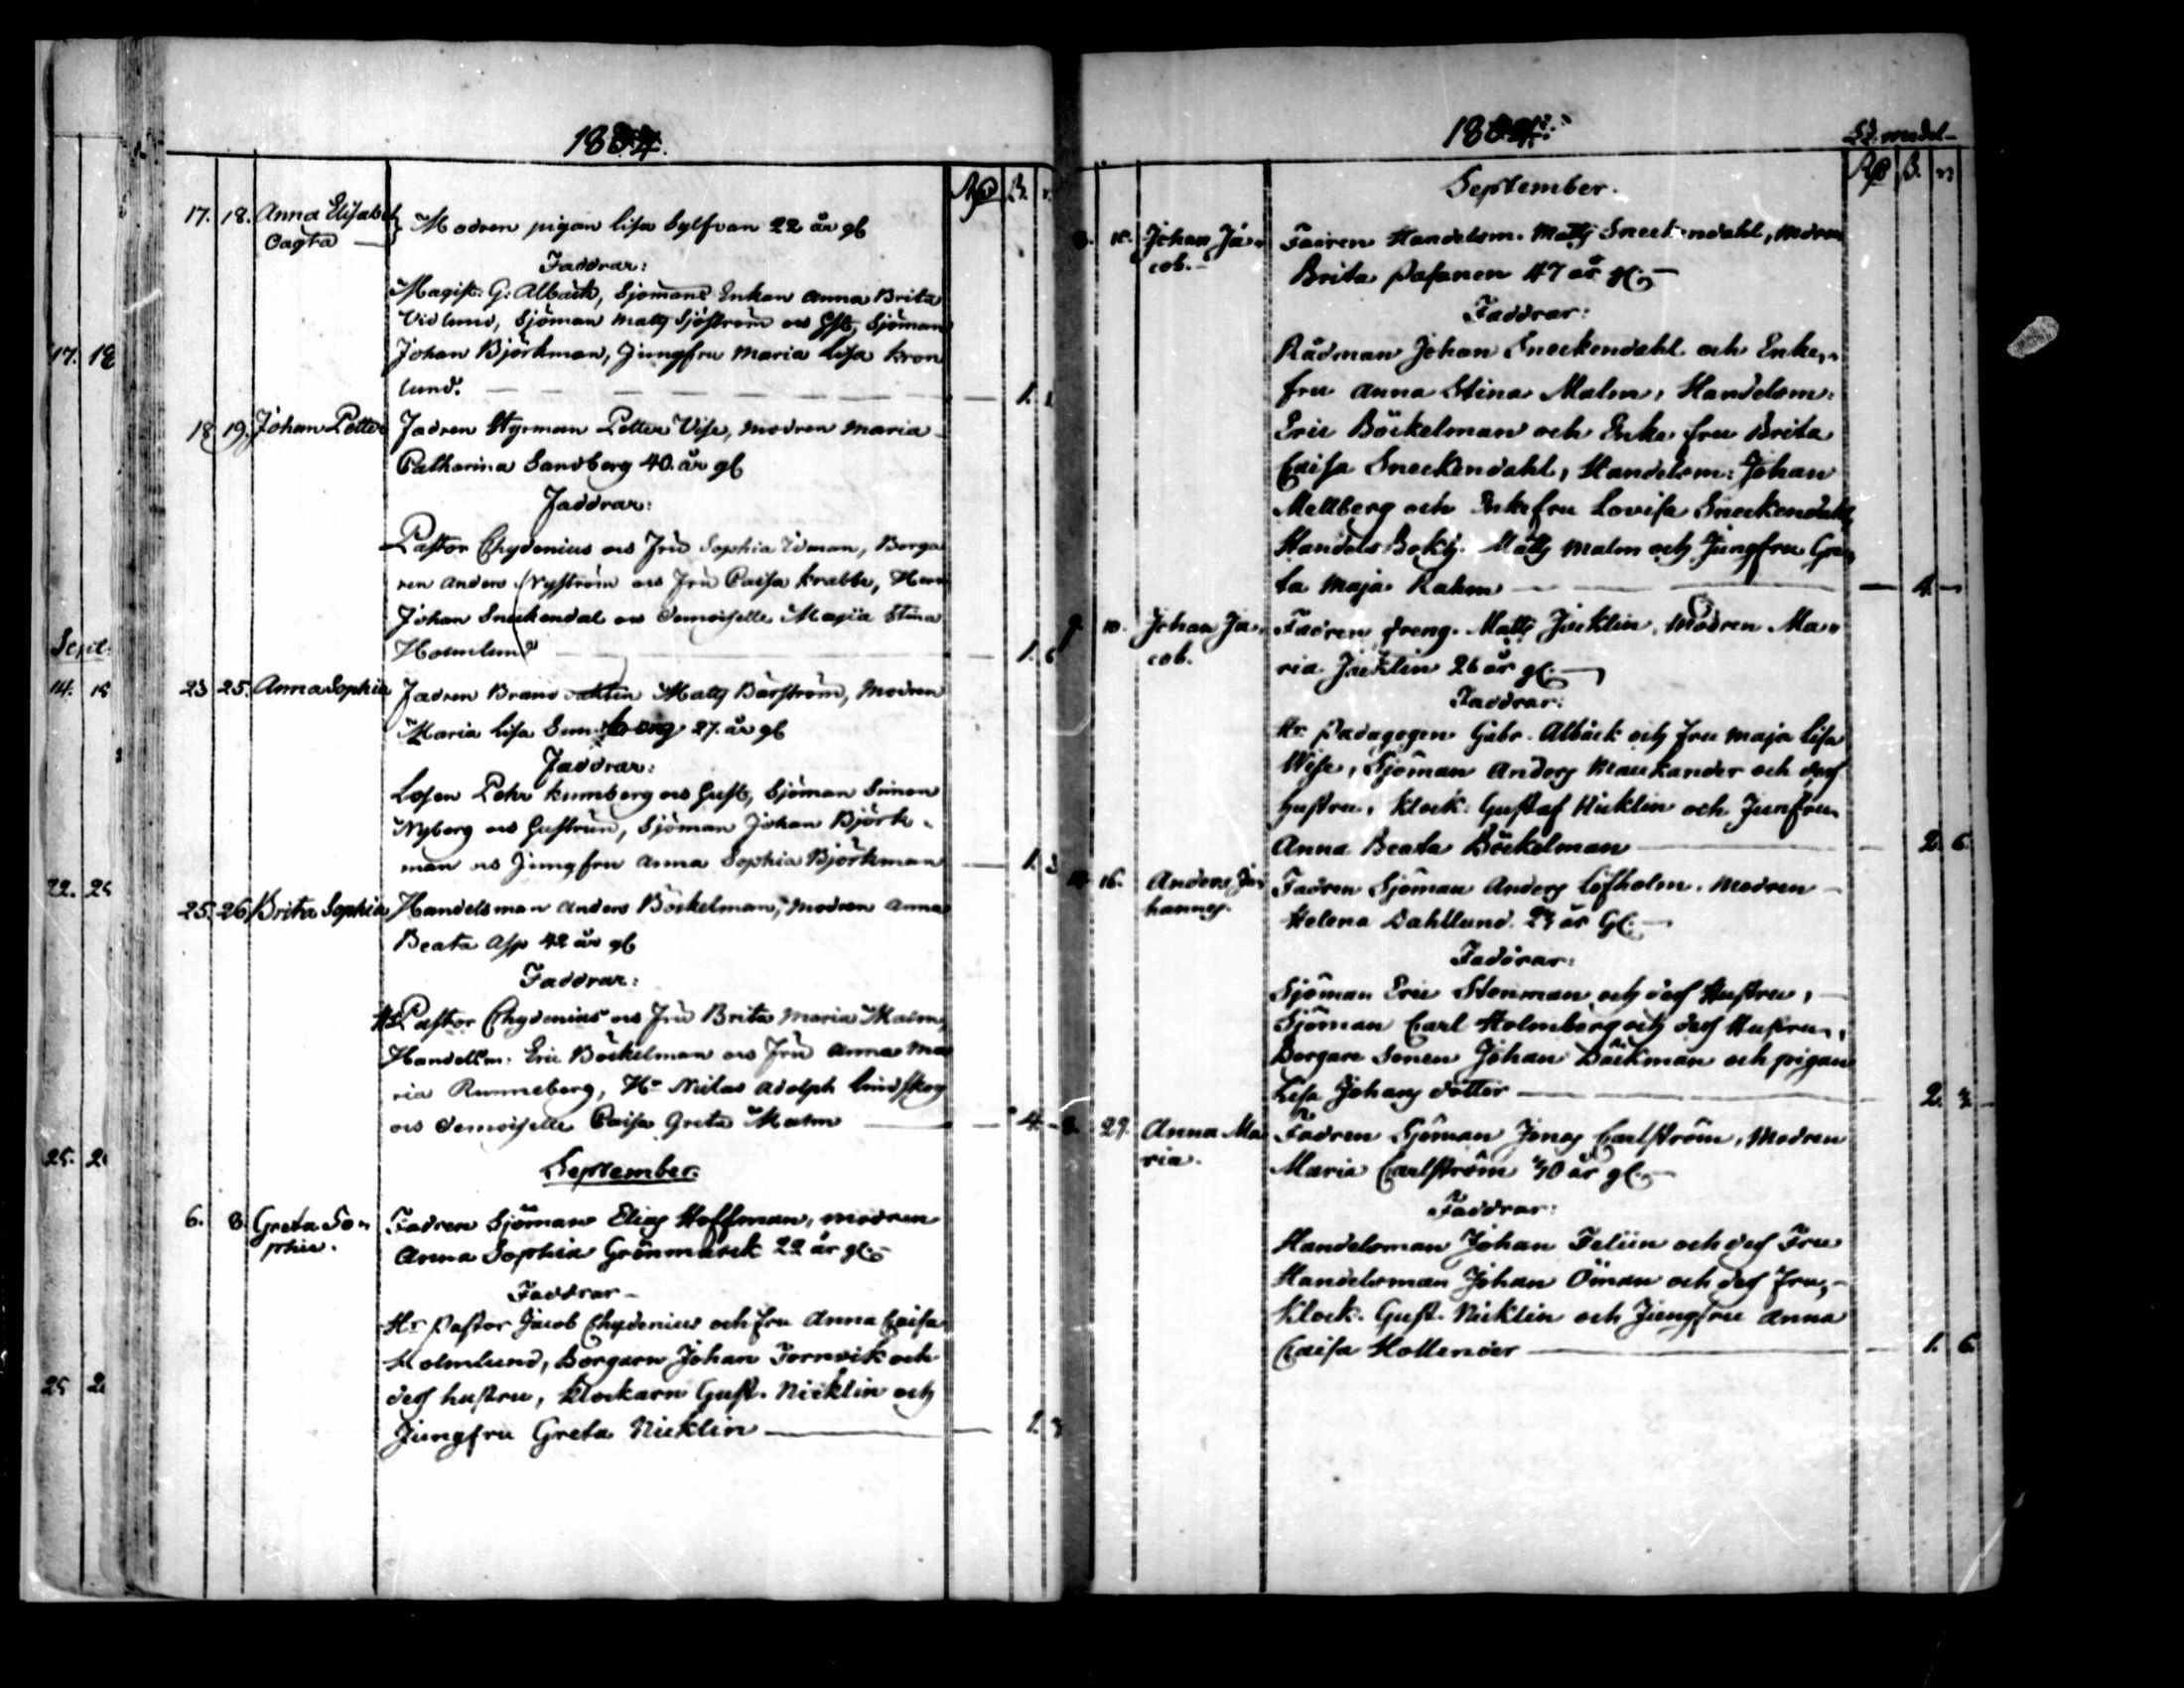 17. 18
Sept:
14. 15
22. 25
25. 2
25 2
1804.
Rd ß. r.
17. 18. Anna Elisabet Modren pigan Lisa Sylfvan 22 år gl
Oägta
Faddrar:
Magist. G: Albäck, Sjömans Enkan Anna Brita
Vidlund, Sjöman Matts Sjöström os Hst, Sjöman
Johan Björkman, Jungfru Maria Lisa Kron
lund. 1.
18 19. Johan Petter Fadren Styrman Petter Vise, modren Maria
Catharina Sandberg 40. år gl
Faddrar:
Pastor Chydenius os Fru Sophia Idman, Borga
ren Anders Nyström os Fru Caisa Krabbe, Herr
Johan Sneckendal os Demoiselle Maija Stina
Holmlund 1. 6
23 25. Anna Sophia Fadren Brandvakten Matts Bärström, Modren
Maria Lisa Sundberg 27. år gl
Faddrar:
Lotsen Pehr Kumberg os Hust, Sjöman Simon
Nyberg os Hustrun, Sjöman Johan Björk-
man os Jungfru Anna Sophia Björkman 1. 3
25. 26. Brita Sophia Handelsman Anders Böckelman, Modren Anna
Beata Asp 42 år gl
Faddrar:
Hr Pastor Chydenius os Fru Brita Maria Malm,
Handelsm: Eric Böckelman os Fru Anna Ma
ria Runneberg, Hr Niclas Adolph Lindskog
os Demoiselle Caisa Greta Malm 4. -
September.
6. 8. Greta So- Fadren Sjöman Elias Hoffman, modren
phia. Anna Sophia Grönmarck 22 år gl.
Faddrar
Hr Pastor Jacob Chydenius och fru Anna Caisa
Holmlund, Borgarn Johan Fornvik och
dess hustru, Klockarn Gust. Nicklin och
Jungfru Greta Nicklin 1. 3
1804. medel
Rd ß. r
September.
8. 10. Johan Ja- Fadren Handelsm. Matts Sneckendahl, modren
cob. Brita Pasanen 47 år gl.
Faddrar:
Rådman Johan Sneckendahl och Enke-
fru Anna Stina Malm, Handelsm:
Eric Böckelman och Enke fru Brita
Caisa Sneckendahl, Handelsm: Johan
Mellberg och Enkefru Lovisa Sneckendahl,
Handels Bokh. Matts Malm och Jungfru Gre-
ta Maja Rahm 4. -
9. 10. Johan Ja- Fadren dreng. Matts Jäcklin, Modren Ma-
cob. ria Jäcklin 26 år gl.
Faddrar:
Hr Pædagogen Gabr. Albäck och fru Maja Lisa
Wise, Sjöman Anders Maukander och dess
hustru, Klock: Gustaf Nicklin och Junfru
Anna Beata Böckelman 2. 6.
16. Anders Jo- Fadren Sjöman Anders Löfholm. Modren
hannes. Helena Dahllund. 23 år Gl.
Faddrar:
Sjöman Eric Stenman och dess Hustru,
Sjöman Carl Holmberg och dess Hustru,
Borgare Sonen Johan Bäckman och pigan
Lisa Johans dotter 2. 3.
29. Anna Ma Fadren Sjöman Jonas Carlström, Modren
ria. Maria Carlström 40 år gl.
Faddrar:
Handelsman Johan Felün och dess Fru
Handelsman Johan Öman och dess fru,
Klock. Gust. Nicklin och Jungfru Anna
Caisa Hollender 1. 6.